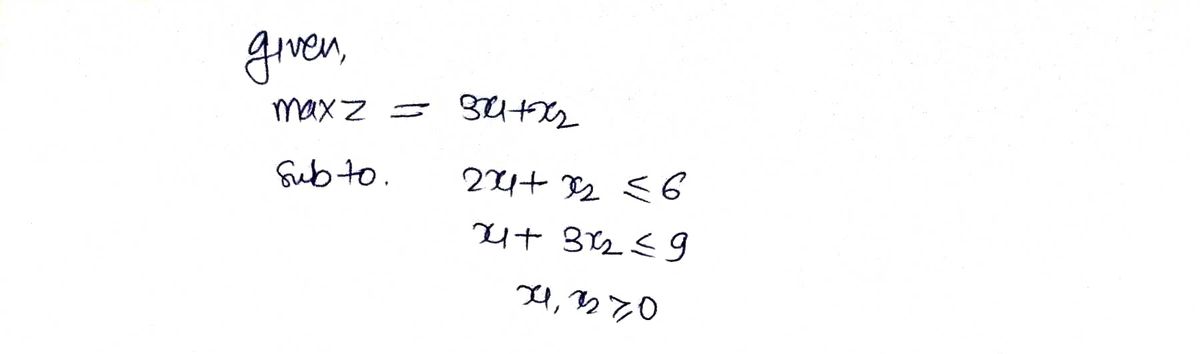 given,
max z = 3x1+x2
Sub to. 2x1+ x2 ≤ 6
x1+ 3x2 ≤ 9
x1, x2 ≥ 0